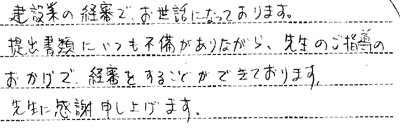 建設業の経審で、お世話になっております。
提出書類にいつも不備がありながら、先生のご指導の
おかげで、経審をすることができております。
先生に感謝申し上げます。